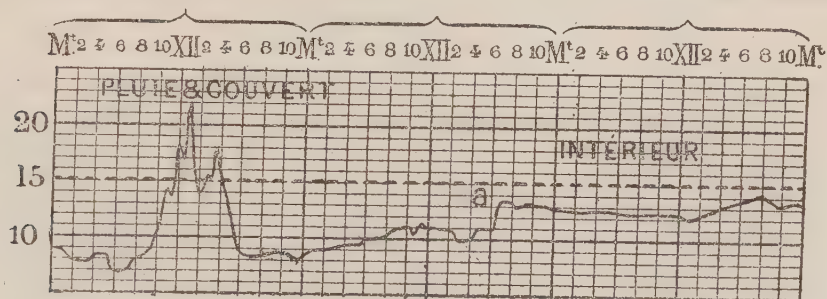 Mt. 2 4 6 8 10 XII 2 4 6 8 10 Mt. 2 4 6 8 10 XII 2 4 6 8 10 Mt. 2 4 6 8 10 XII 2 4 6 8 10 Mt.
PLUIE & COUVERT
20
INTÉRIEUR
15
a
10